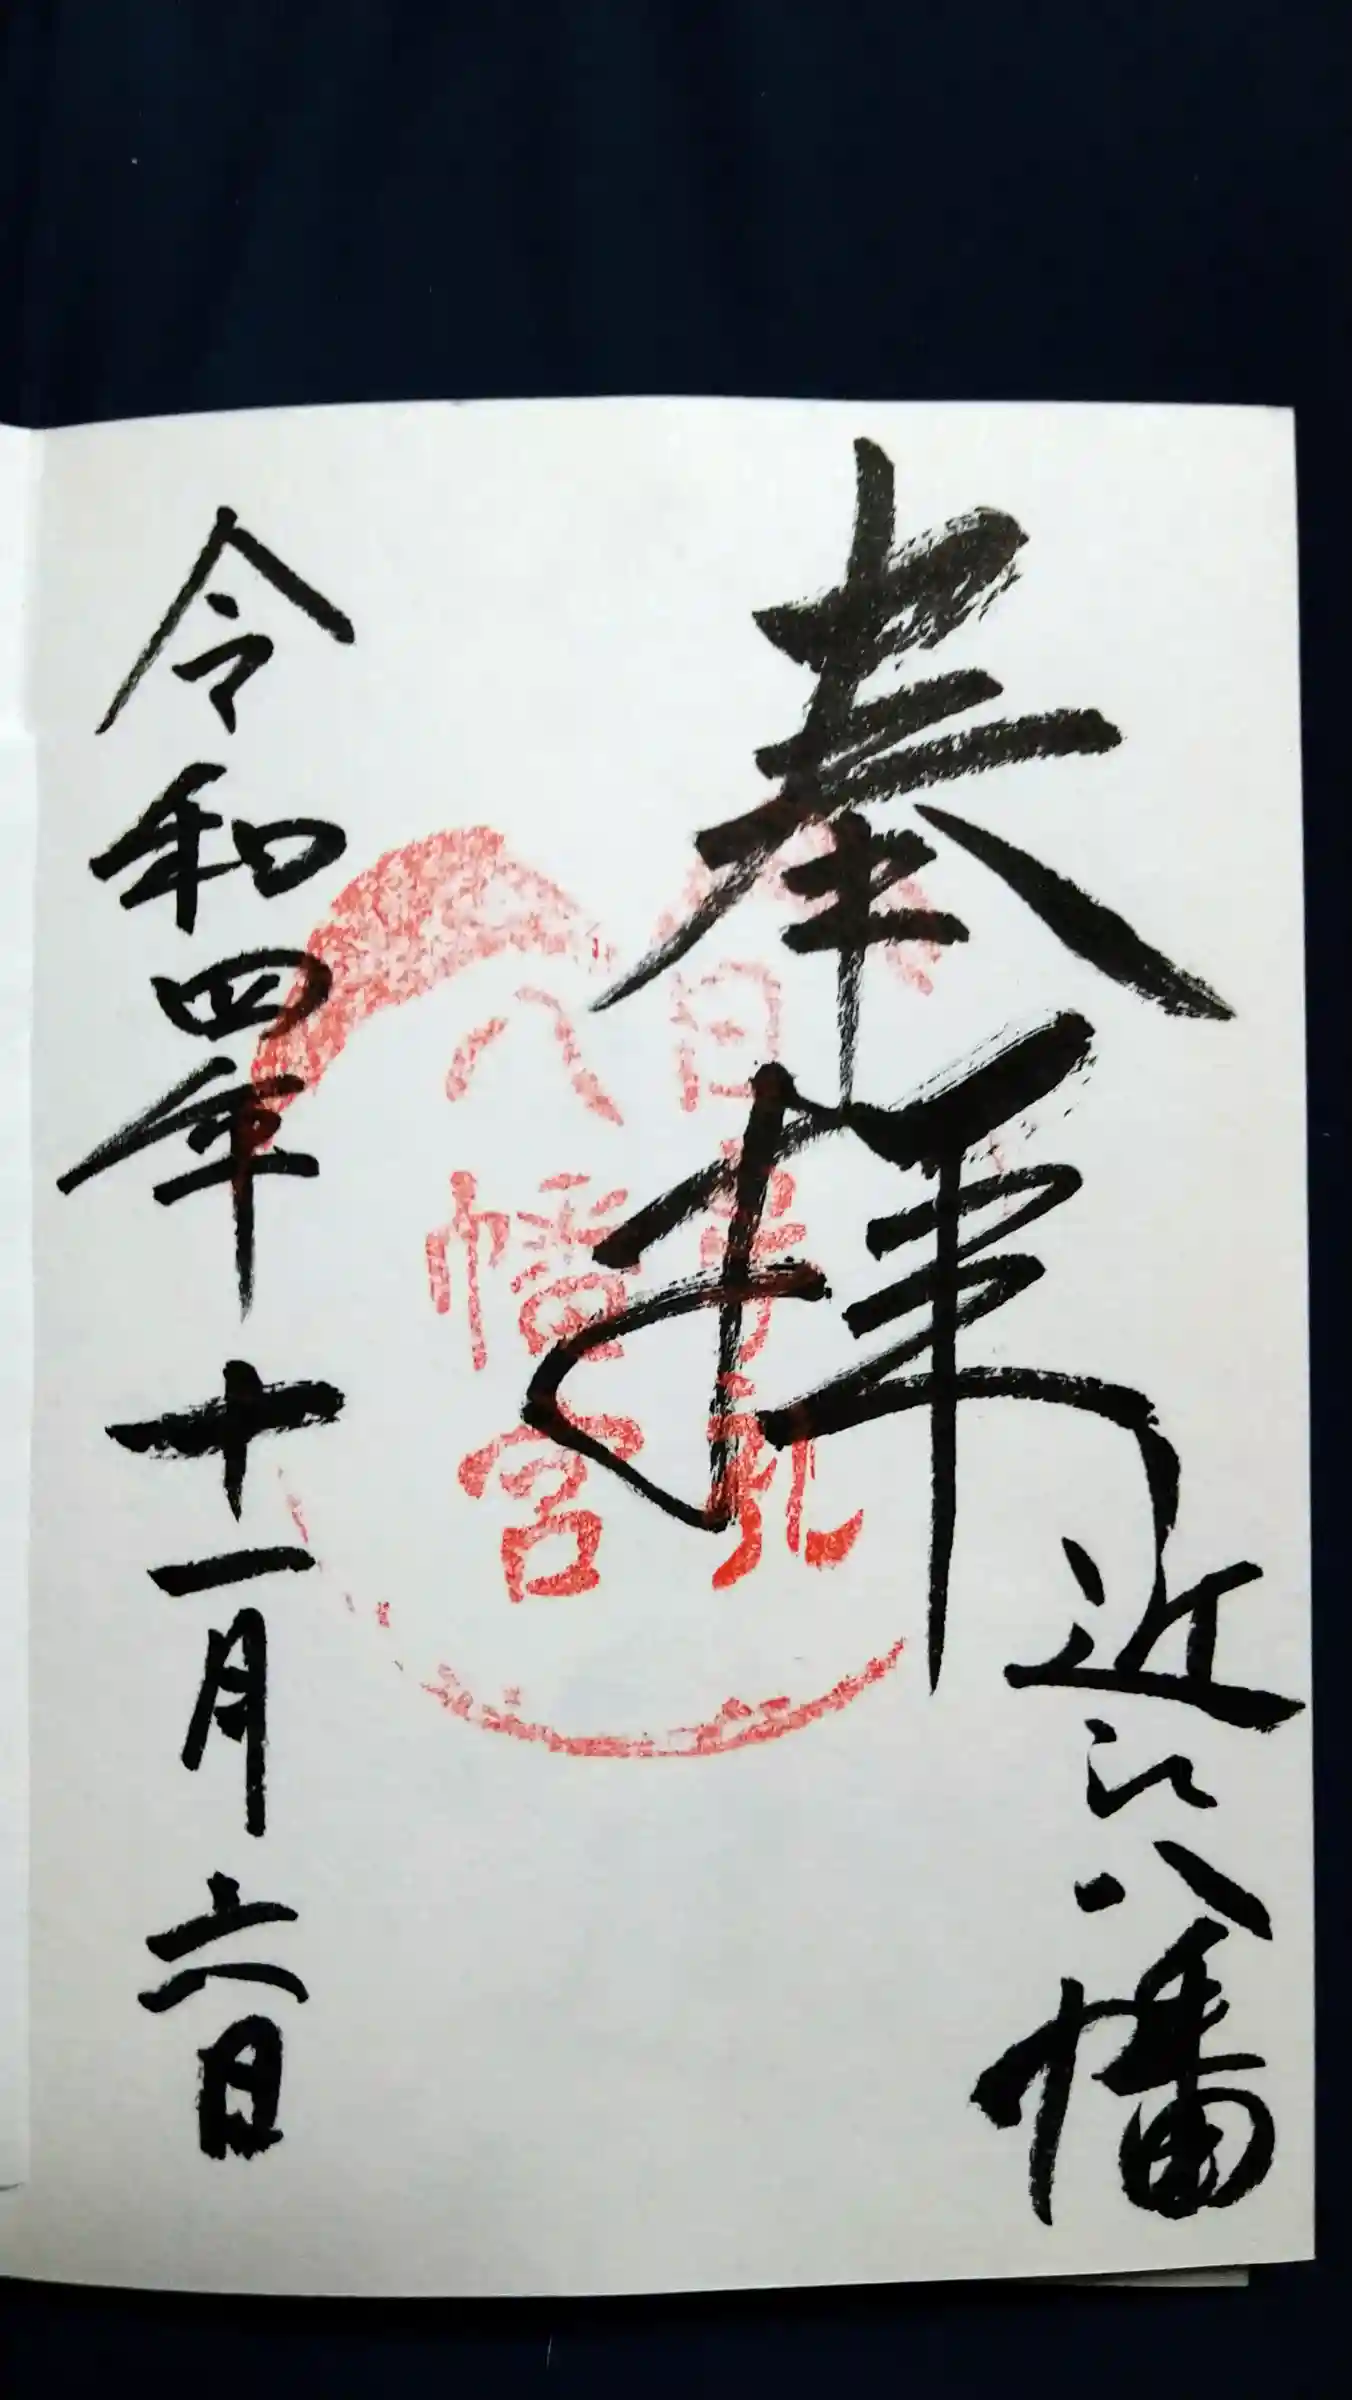 奉拝
近江八幡
日牟禮
八幡宮
令和四年 十一月六日